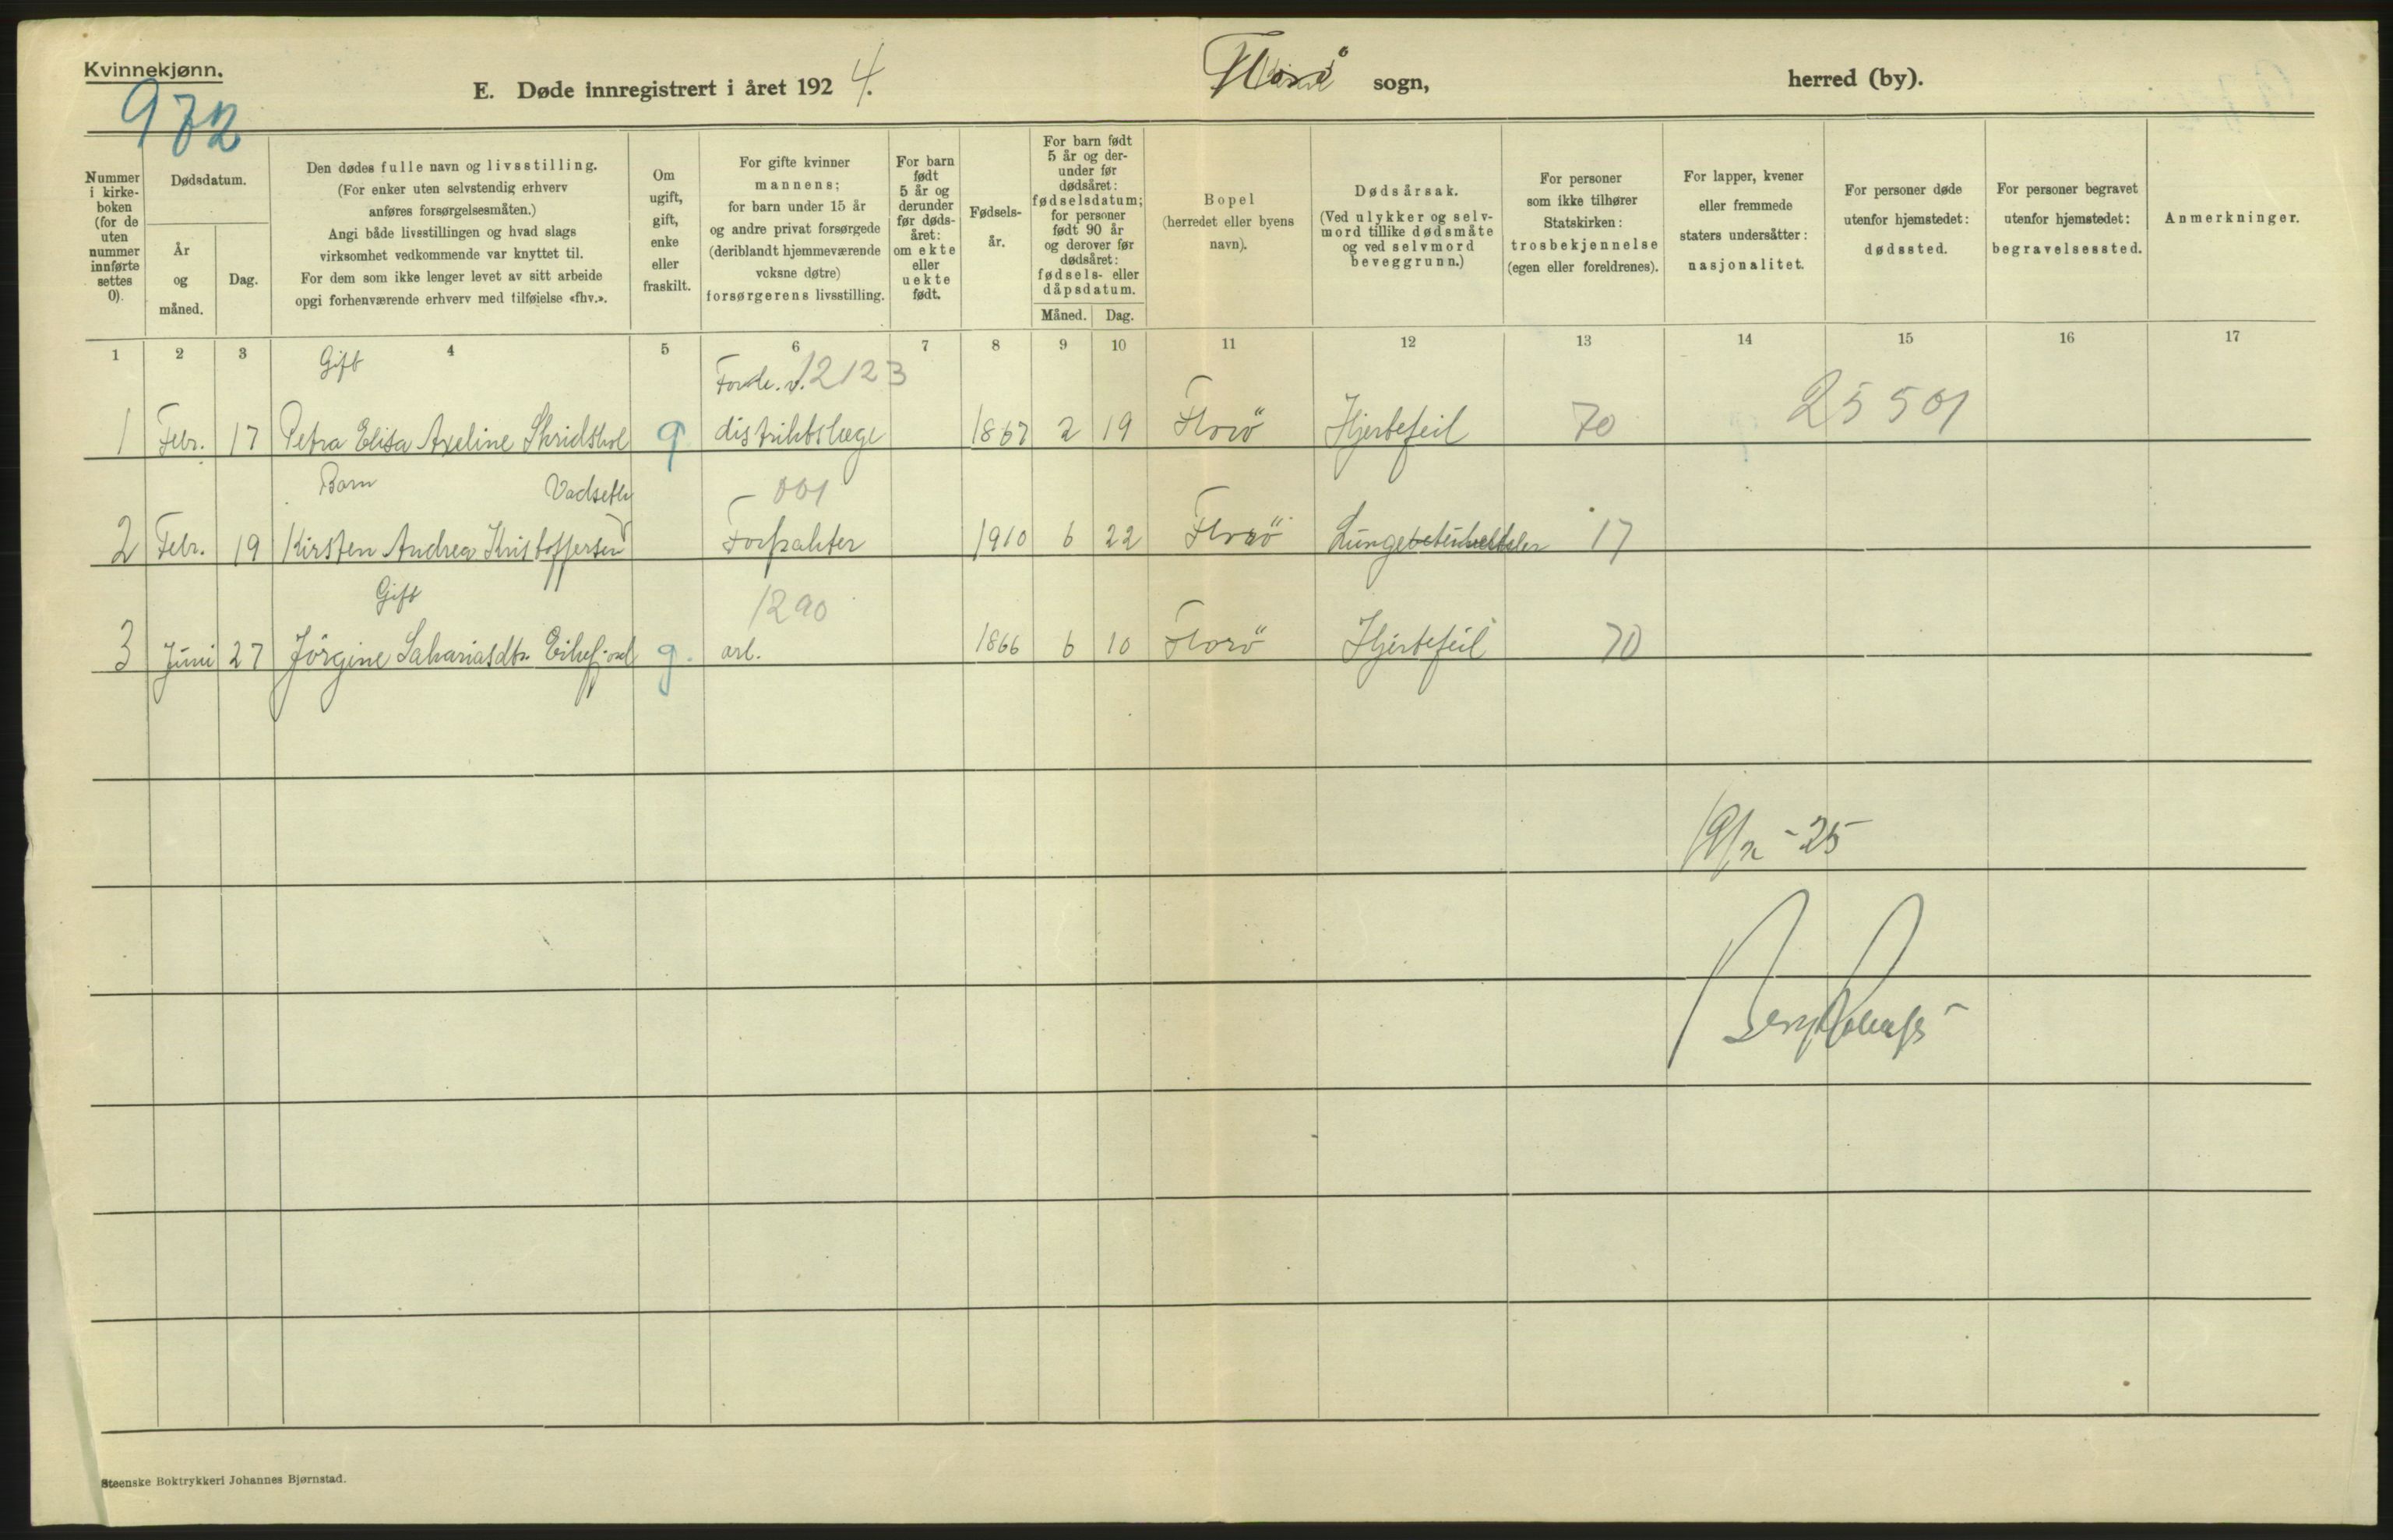 Kvinnekjønn.
972
E. Døde innregistrert i året 1924.
Florö sogn,
herred (by).
Nummer i kirke- boken (for de uten nummer innførte settes 0).
Dødsdatum.
År og måned.
Dag.
Den dødes fulle navn og livsstilling.
(For enker uten selvstendig erhverv
anføres forsørgelsesmåten.)
Angi både livsstillingen og hvad slags
virksomhet vedkommende var knyttet til.
For dem som ikke lenger levet av sitt arbeide
opgi forhenværende erhverv med tilføielse «fhv.».
Om
ugift,
gift,
enke
eller
fraskilt.
For gifte kvinner
mannens;
for barn under 15 år
og andre privat forsørgede
(deriblandt hjemmeværende
voksne døtre)
forsørgerens livsstilling.
For barn
født
5 år og
derunder
før døds-
året:
om ekte
eller
uekte
født.
Fødsels-
år.
For barn født
5 år og der-
under før
dødsåret:
fødselsdatum;
for personer
født 90 år
og derover før
dødsåret:
fødsels- eller
dåpsdatum.
Måned. Dag.
Bopel
(herredet eller byens
navn).
Dødsårsak.
(Ved ulykker og selv-
mord tillike dødsmåte
og ved selvmord
beveggrunn.)
For personer
som ikke tilhører
Statskirken:
trosbekjennelse
(egen eller foreldrenes).
For lapper, kvener
eller fremmede
staters undersåtter:
nasjonalitet.
For personer døde
utenfor hjemstedet:
dødssted.
For personer begravet
utenfor hjemstedet:
begravelsessted.
Anmerkninger.
1 2 3 4 5 6 7 8 9 10 11 12 13 14 15 16 17
Gift 12123
1 Febr. 17 Petra Elisa Axeline Skridshol g distriktslæge 1867 2 19 Florö Hjertefeil 70 25501
Barn Vadseth 001
2 Febr. 19 Kirsten Andrea Kristoffersen Forpakter 1910 6 22 Florö 17
Gift 1290
3 Juni 27 Jörgine Sakariasdtr. Eikefjord g. arb. 1866 6 10 Florö Hjertefeil 70
19/2 - 25
Steenske Boktrykkeri Johannes Bjørnstad.